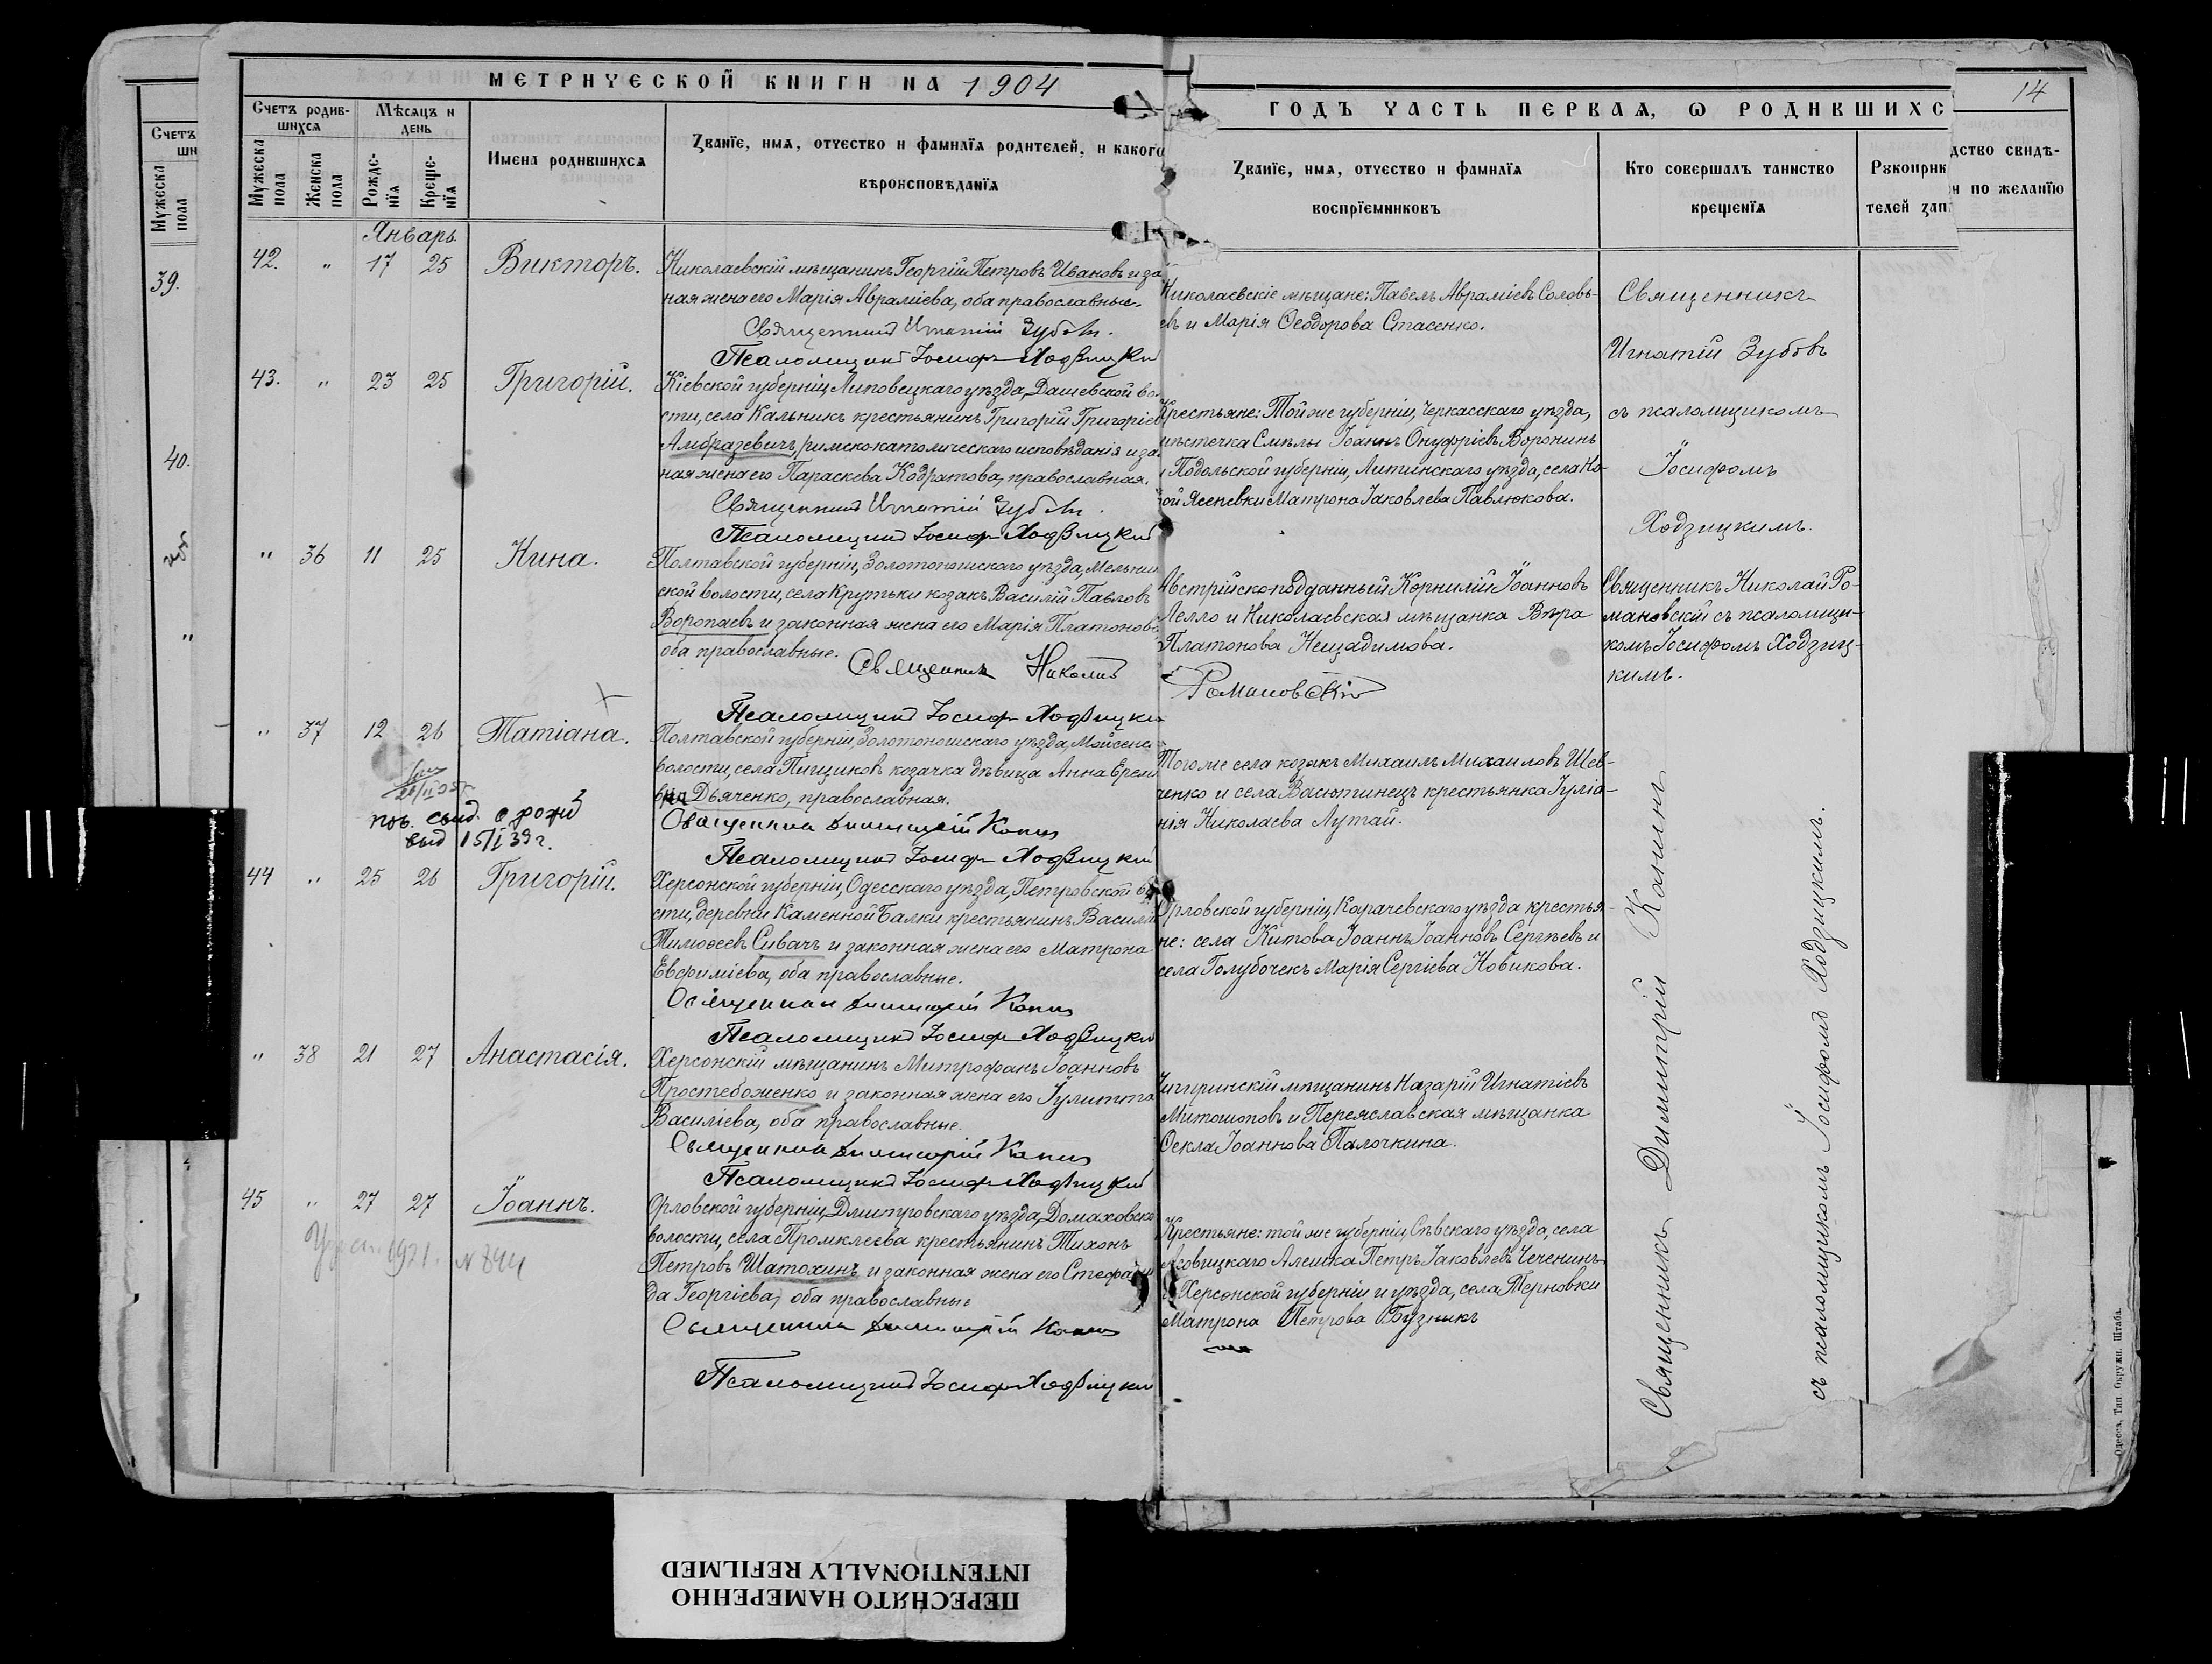 МЕТРИЧЕСКОЙ КНИГИ НА 1904
ГОДЪ ЧАСТЬ ПЕРВАЯ, Ѡ РОДИВШИХС
14
Счетъ родив-
шихся
Мѣсяцъ и
день
Мужеска
пола
Женска
пола
Рожде-
нїя
Креще-
нїя
Имена родившихся
Званїе, имя, отчество и фамилїя родителей, и какого
вѣроисповѣданїя
Званїе, имя, отчество и фамилїя
воспрїемниковъ
Кто совершалъ таинство
крещенїя
Рукоприк
телей зап
дство свидѣ-
и по желанїю
Счетъ
ши
Мужеска
пола
39.
40.
"
Январь
42. " 17 25 Викторъ.
Николаевскій мѣщанинъ Георгій Петровъ Ивановъ и за
ная жена его Марія Авраміева, оба православные.
Священник Игнатій Зубовъ.
Псаломщик Іосиф Ходзицкій
Николаевскіе мѣщане: Павелъ Авраміевъ Соловь-
евъ и Марія Ѳеодорова Стасенко.
Священникъ
Игнатій Зубовъ
съ псаломщикомъ
Іосифомъ
Ходзицкимъ.
43. " 23 25 Григорій.
Кіевской губерніи, Липовецкаго уѣзда, Дашевской во
сти, села Кальникъ крестьянинъ Григорій Григоріев
Амбразевичъ, римско католическаго исповѣданія и за
ная жена его Параскева Кодратова, православная.
Священник Игнатій Зубовъ.
Псаломщик Іосиф Ходзицкій
Крестьяне: Той же губерніи, Черкасскаго уѣзда,
мѣстечка Смѣлы Іоаннъ Онуфріевъ Воронинъ
и Подольской губерніи, Литинскаго уѣзда, села Но-
вой Ясеневки Матрона Іаковлева Павлюкова.
" 36 11 25 Нина.
Полтавской губерніи, Золотоношскаго уѣзда, Мельник
ской волости, села Крутьки козакъ Василій Павловъ
Воропаевъ и законная жена его Марія Платонова
оба православные.
Священникъ Николай
Романовскій
Псаломщик Іосиф Ходзицкій
Австрійско подданный Корнилій Іоанновъ
Лелло и Николаевская мѣщанка Вѣра
Платонова Нещадимова.
Священникъ Николай Ро-
мановскій съ псаломщи-
комъ Іосифомъ Ходзиц-
кимъ.
" 37 12 26 Татіана.
Полтавской губерніи, Золотоношскаго уѣзда, Мойсенс
волости, села Пищиковъ козачка дѣвица Анна Ереми
вна Дьяченко, православная.
Священник Димитрій Копин
Псаломщик Іосиф Ходзицкій
Того же села козакъ Михаилъ Михаиловъ Шев-
ченко и села Васютинецъ крестьянка Іуліа-
нія Николаева Лутай.
пов. свид. о рожд
выд 15/I 39 г.
44 " 25 26 Григорій.
Херсонской губерніи, Одесскаго уѣзда, Петровской во
сти, деревни Каменной Балки крестьянинъ Василій
Тимоѳеевъ Сивачъ и законная жена его Матрона
Евфиміева, оба православные.
Священник Димитрій Копин
Псаломщик Іосиф Ходзицкій
Орловской губерніи, Карачевскаго уѣзда крестья-
не: села Китова Іоаннъ Іоанновъ Сергѣевъ и
села Голубочекъ Марія Сергіева Новикова.
" 38 21 27 Анастасія.
Херсонскій мѣщанинъ Митрофанъ Іоанновъ
Простебоженко и законная жена его Іулитта
Василіева, оба православные.
Священник Димитрій Копин
Псаломщик Іосиф Ходзицкій
Чигиринскій мѣщанинъ Назарій Игнатіевъ
Митошоповъ и Переяславская мѣщанка
Ѳекла Іоаннова Палочкина.
45 " 27 27 Іоаннъ.
1921. № 844
Орловской губерніи, Дмитровскаго уѣзда, Домаховско
волости, села Промклеева крестьянинъ Тихонъ
Петровъ Шатохинъ и законная жена его Стефани
да Георгіева, оба православные
Священник Димитрій Копин
Псаломщик Іосиф Ходзицкій
Крестьяне: той же губерніи, Сѣвскаго уѣзда, села
Алешка Петръ Іаковлевъ Чеченинъ
и Херсонской губерніи и уѣзда, села Терновки
Матрона Петрова Бузникъ
Священникъ Димитрій Копинъ
съ псаломщикомъ Іосифомъ Ходзицкимъ.
Одесса, Тип. Окружн. Штаба.
ПЕРЕСНЯТО НАМЕРЕННО
INTENTIONALLY REFILMED